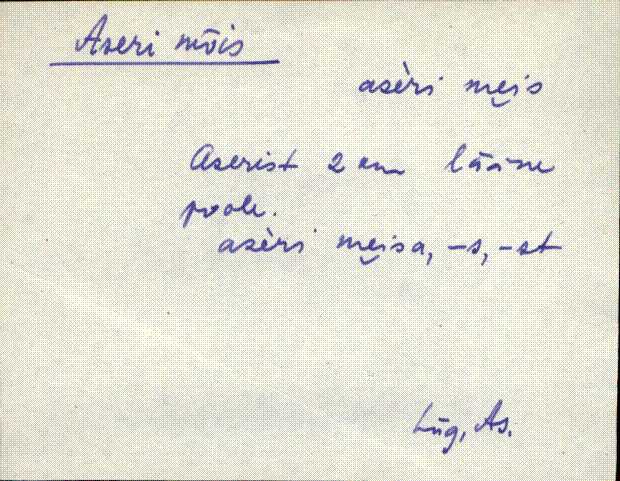 Aseri mõis
asèri me̮i̯s
Aserist 2 km lääne
poole.
asèri me̮i̯sa, -s, -st
Lüg, As.